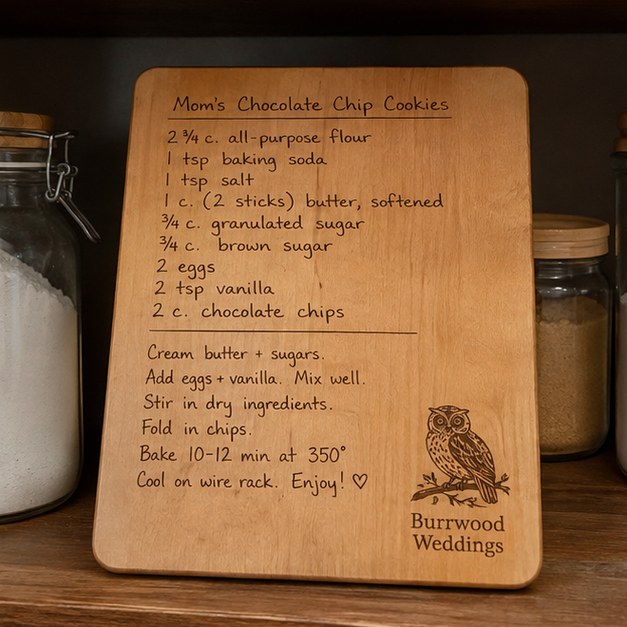 Mom's Chocolate Chip Cookies
2 ¾ c. all-purpose flour
1 tsp baking soda
1 tsp salt
1 c. (2 sticks) butter, softened
¾ c. granulated sugar
¾ c. brown sugar
2 eggs
2 tsp vanilla
2 c. chocolate chips
Cream butter + sugars.
Add eggs + vanilla. Mix well.
Stir in dry ingredients.
Fold in chips.
Bake 10-12 min at 350°
Cool on wire rack. Enjoy! ♡
Burrwood
Weddings